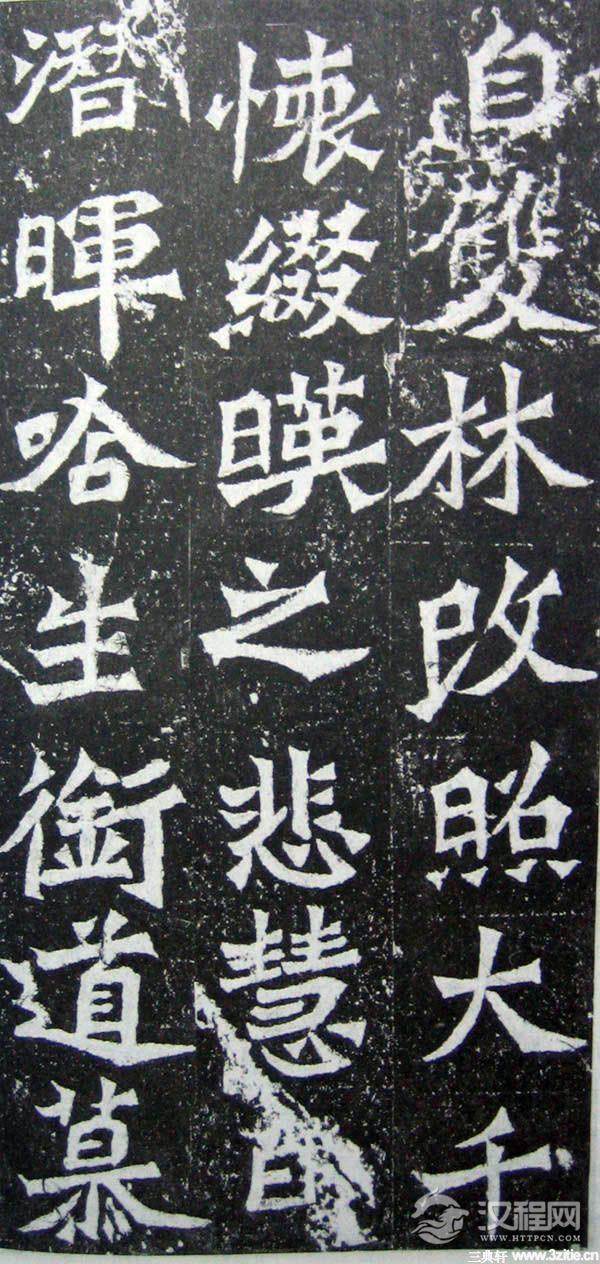 自雙林改照大千
懷綴暎之悲慧日
潛暉唅生銜道慕
汉程网
WWW.HTTPCN.COM
三典轩 www.3zitie.cn